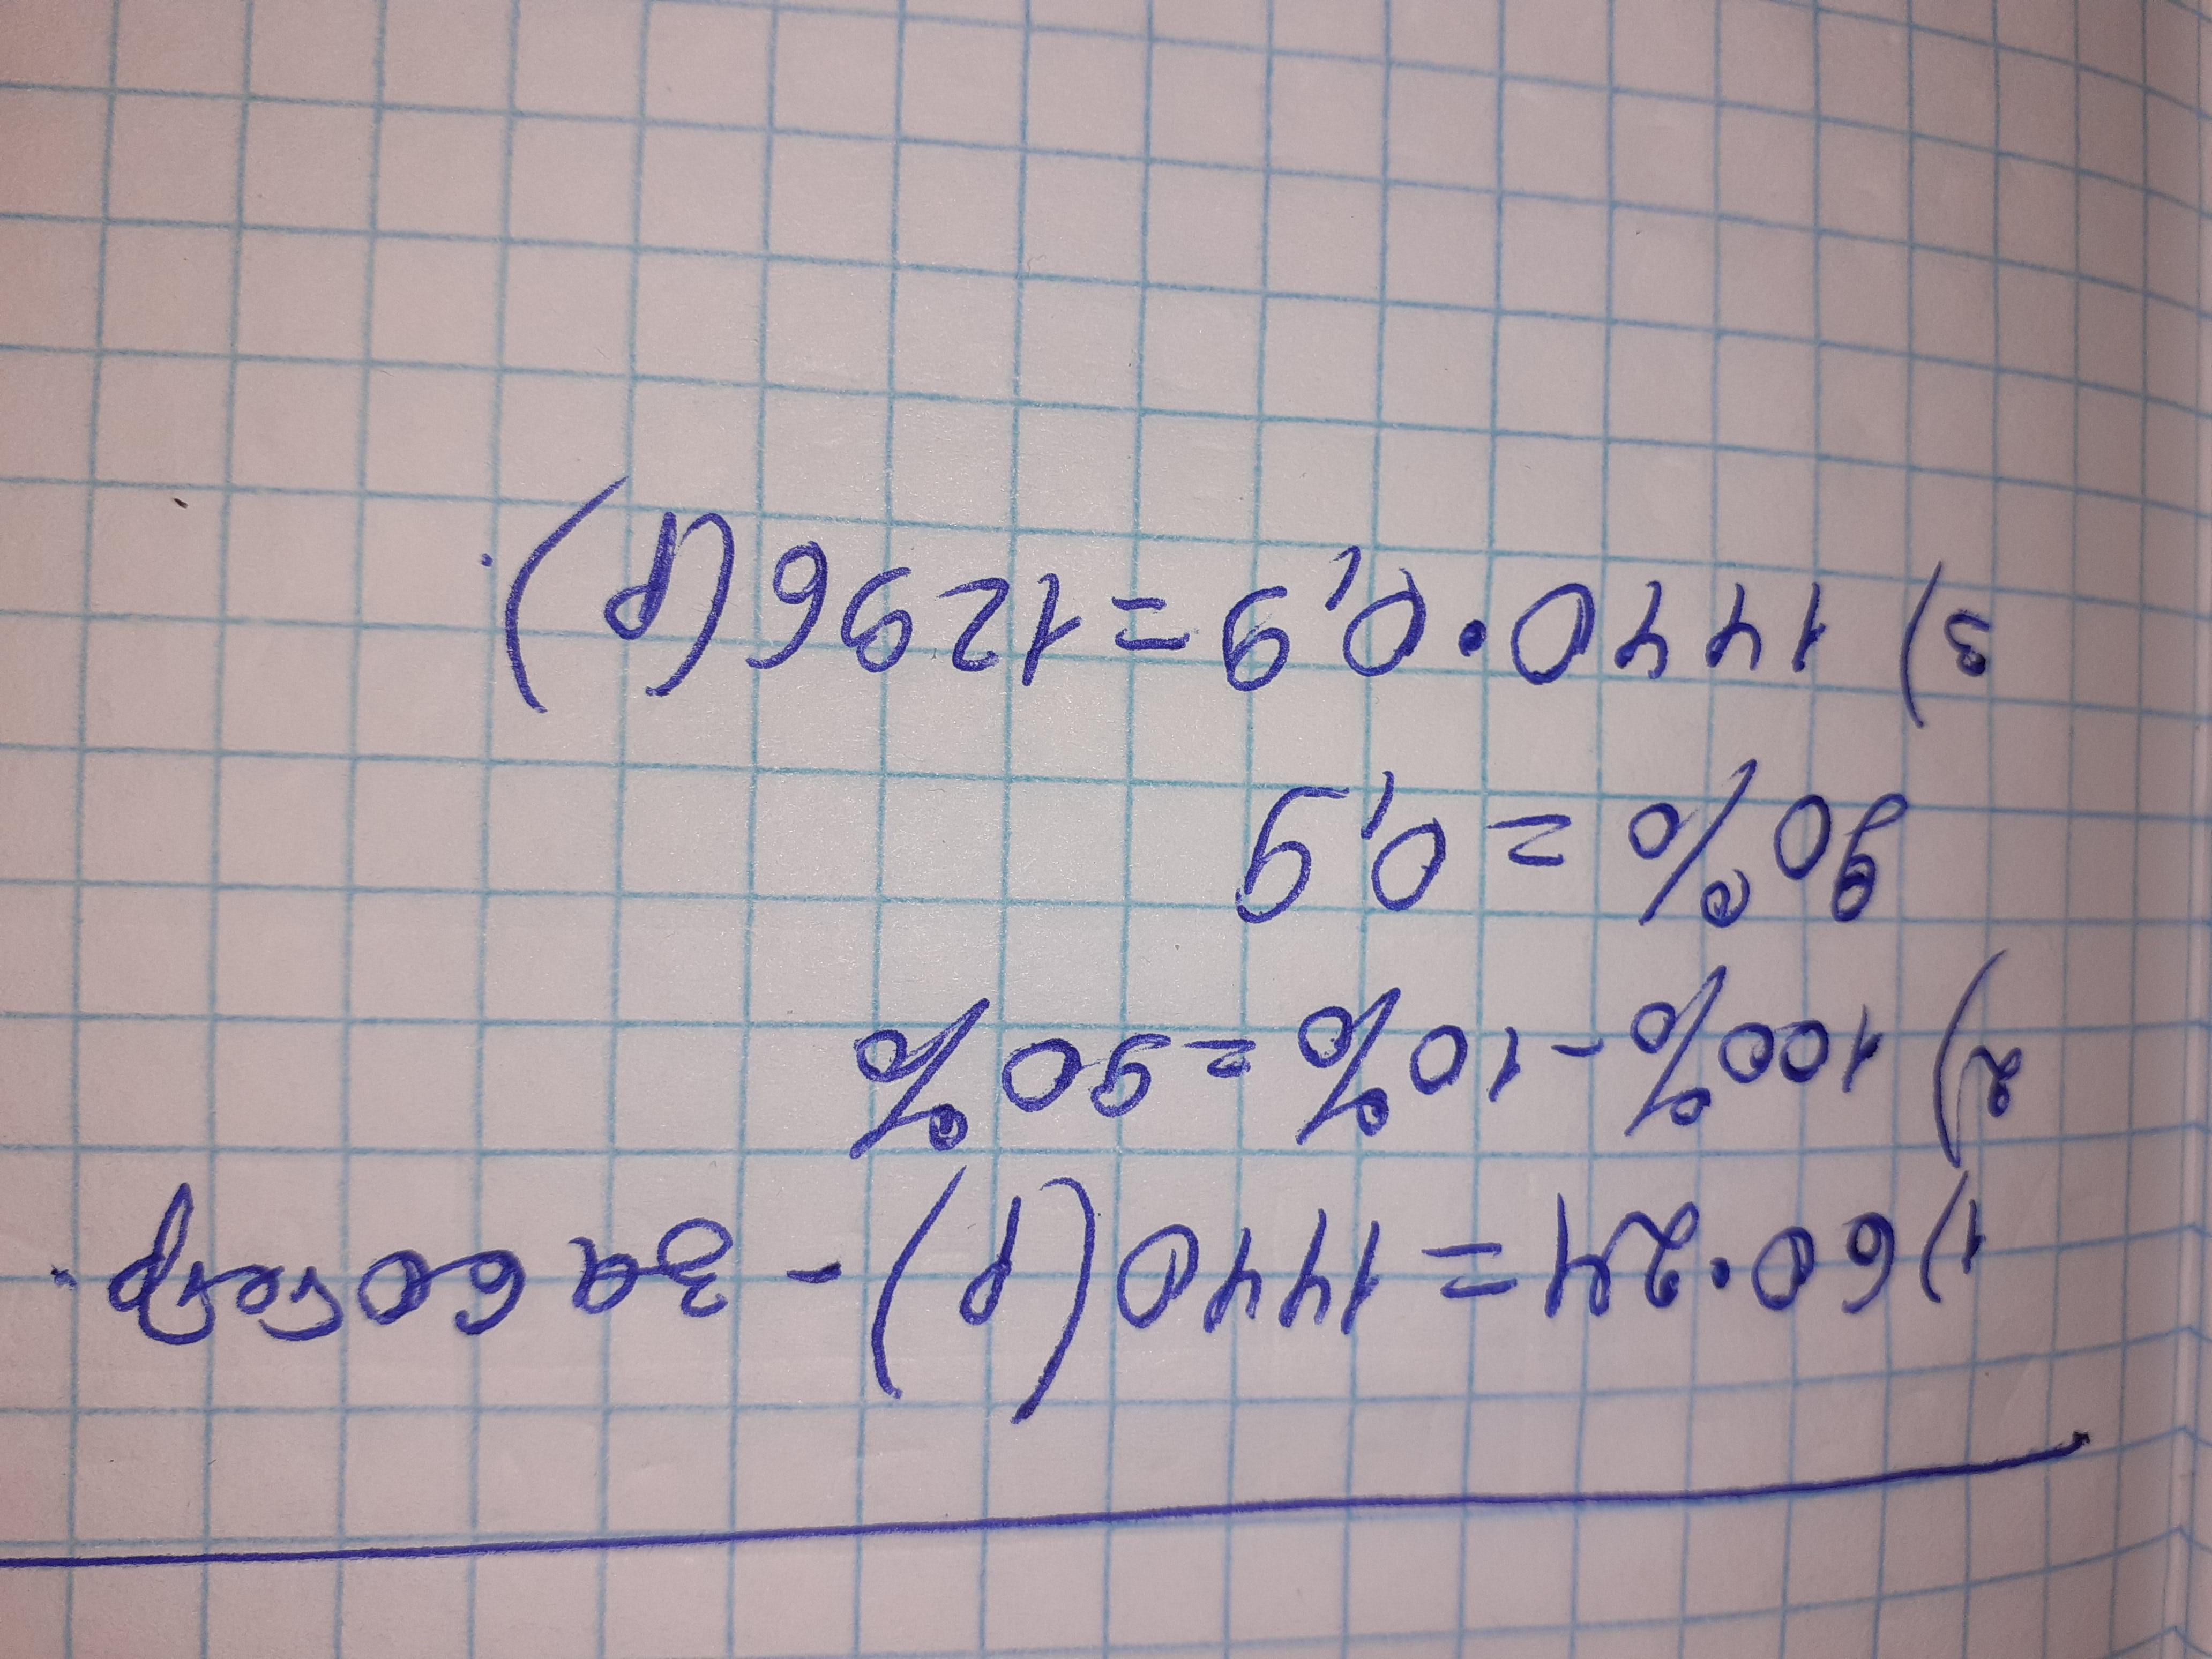 1) 60·24=1440(р)-за 60 тетр.
2) 100%-10%=90%
90%=0,9
3) 1440·0,9=1296(р).